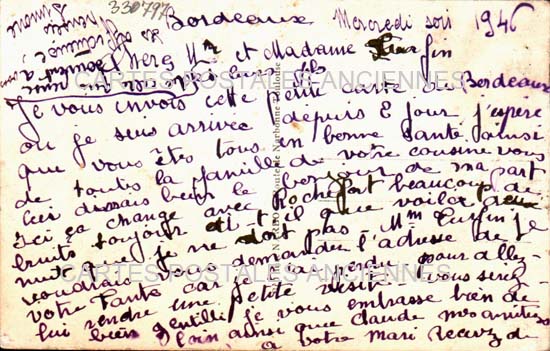 330797
Bordeaux Mercredi soir 1946
Chers Mr et Madame
Je vous envois cette petite carte de Bordeaux
ou je suis arrivée depuis 8 jour j'espère
que vous êtes tous en bonne santé ainsi
de toutes la famille de votre cousine vous
leurs le bonjour de ma part
Ici ça change avec Rochefort beaucoup de
bruits toujours et il que voilà
nuit que je ne dort pas Mme je
voudrais vous demander l'adresse de
votre Tante car je l'ai perdu pour allez
lui rendre une petite visite vous serez
bien gentille je vous embrasse bien de
loin ainsi que claude mes amitiés
a votre mari Recevez de
Simone
CARTES POSTALES ANCIENNES
CARTES POSTALES ANCIENNES